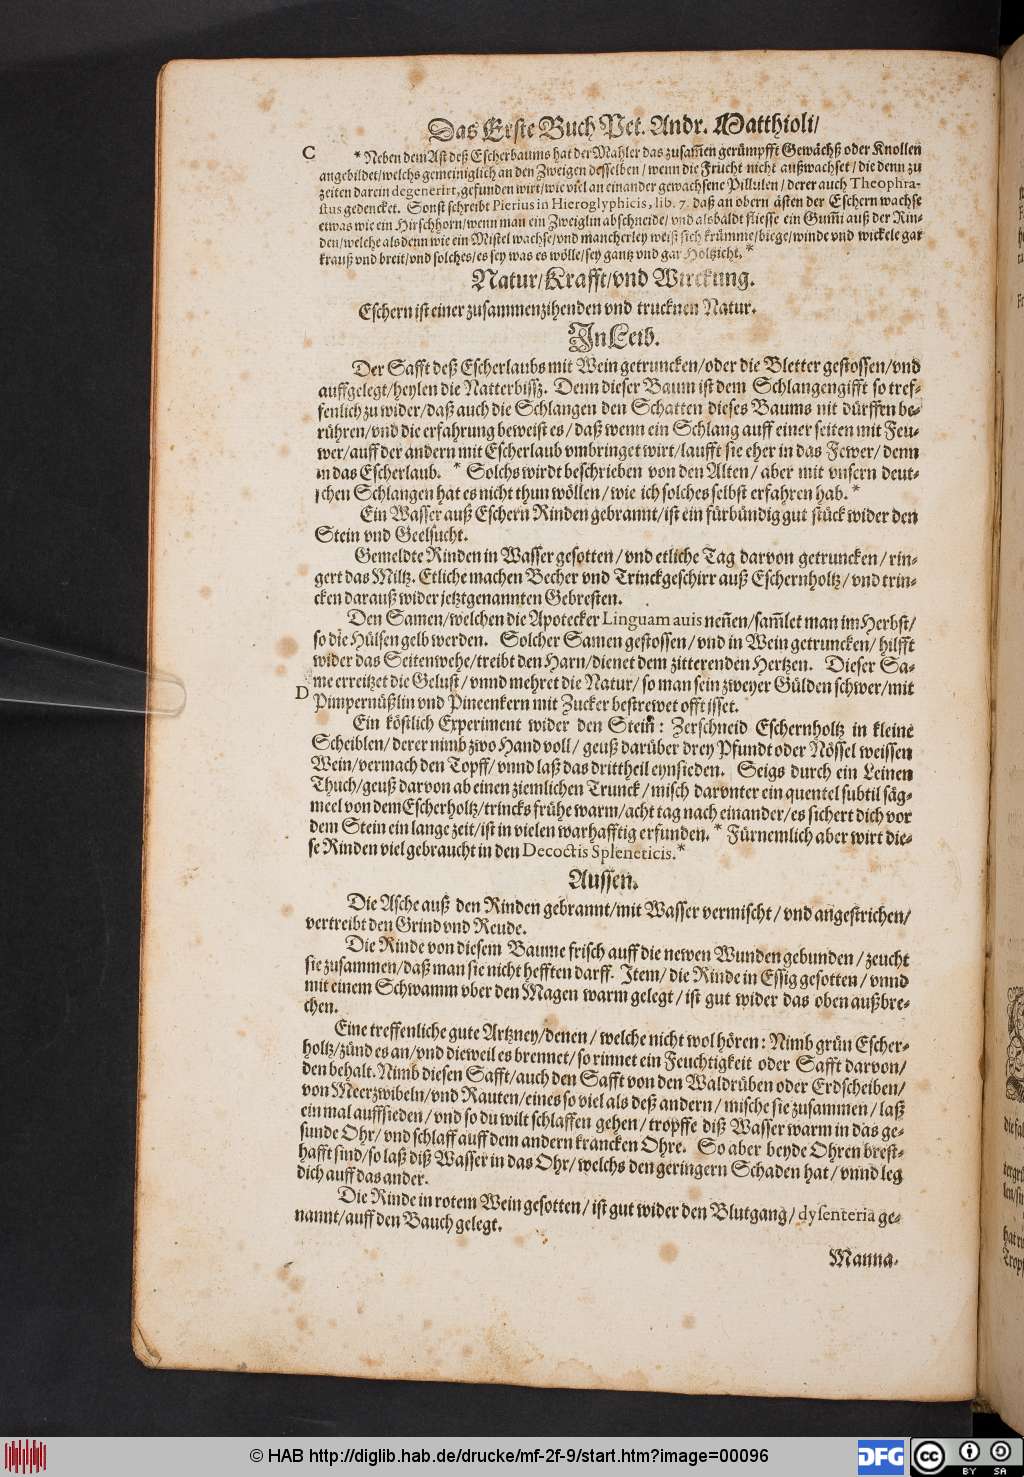 Das Erste Buch Pet. Andr. Matthioli/
C
* Neben dem Ast deß Escherbaums hat der Mahler das zusam̃en gerümpfft Gewächß oder Knollen
angebildet/welchs gemeiniglich an den Zweigen desselben/wenn die Frucht nicht außwachset/die denn zu
zeiten darein degenerirt, gefunden wirt/wie viel an einander gewachsene Pillulen/derer auch Theophra-
stus gedencket. Sonst schreibt Pierius in Hieroglyphicis, lib. 7. daß an obern ästen der Eschern wachse
etwas wie ein Hirschhorn/wenn man ein Zweiglin abschneide/vnd alsbaldt fliesse ein Gum̃i auß der Rin-
den/welche als denn wie ein Mistel wachse/vnd mancherley weiß sich krümme/biege/winde vnd wickele gar
krauß vnd breit/vnd solches/es sey was es wölle/sey gantz vnd gar Höltzicht. *
Natur/Krafft/vnd Wirckung.
Eschern ist einer zusammenzihenden vnd trucknen Natur.
In Leib.
Der Safft deß Escherlaubs mit Wein getruncken/oder die Bletter gestossen/vnd
auffgelegt/heylen die Natterbissz. Denn dieser Baum ist dem Schlangengifft so tref-
fenlich zu wider/daß auch die Schlangen den Schatten dieses Baums nit dürffen be-
rühren/vnd die erfahrung beweist es/daß wenn ein Schlang auff einer seiten mit Feu-
wer/auff der andern mit Escherlaub vmbringet wirt/laufft sie eher in das Fewer/denn
in das Escherlaub. * Solchs wirdt beschrieben von den Alten/aber mit vnsern deut-
schen Schlangen hat es nicht thun wöllen/wie ich solches selbst erfahren hab. *
Ein Wasser auß Eschern Rinden gebrannt/ist ein fürbündig gut stück wider den
Stein vnd Geelsucht.
Gemeldte Rinden in Wasser gesotten/vnd etliche Tag darvon getruncken/rin-
gert das Miltz. Etliche machen Becher vnd Trinckgeschirr auß Eschernholtz/vnd trin-
cken darauß wider jetztgenannten Gebresten.
Den Samen/welchen die Apotecker Linguam auis neñen/sam̃let man im Herbst/
so die Hülsen gelb werden. Solcher Samen gestossen/vnd in Wein getruncken/hilfft
wider das Seitenwehe/treibt den Harn/dienet dem zitterenden Hertzen. Dieser Sa-
me erreitzet die Gelust/vnnd mehret die Natur/so man sein zweyer Gülden schwer/mit
D
Pimpernüßlin vnd Pineenkern mit Zucker bestrewet offt isset.
Ein köstlich Experiment wider den Stein: Zerschneid Eschernholtz in kleine
Scheiblen/derer nimb zwo Hand voll/geuß darüber drey Pfundt oder Nössel weissen
Wein/vermach den Topff/vnnd laß das drittheil eynsieden. Seigs durch ein Leinen
Thuch/geuß darvon ab einen ziemlichen Trunck/misch darvnter ein quentel subtil säg-
meel von dem Escherholtz/trincks frühe warm/acht tag nach einander/es sichert dich vor
dem Stein ein lange zeit/ist in vielen warhafftig erfunden. * Fürnemlich aber wirt die-
se Rinden viel gebraucht in den Decoctis Spleneticis. *
Aussen.
Die Asche auß den Rinden gebrannt/mit Wasser vermischt/vnd angestrichen/
vertreibt den Grind vnd Reude.
Die Rinde von diesem Baume frisch auff die newen Wunden gebunden/zeucht
sie zusammen/daß man sie nicht hefften darff. Item/die Rinde in Essig gesotten/vnnd
mit einem Schwamm vber den Magen warm gelegt/ist gut wider das oben außbre-
chen.
Eine treffenliche gute Artzney/denen/welche nicht wol hören: Nimb grün Escher-
holtz/zünd es an/vnd dieweil es brennet/so rinnet ein Feuchtigkeit oder Safft darvon/
den behalt. Nimb diesen Safft/auch den Safft von den Waldrüben oder Erdscheiben/
von Meerzwibeln/vnd Rauten/eines so viel als deß andern/mische sie zusammen/laß
ein mal auffsieden/vnd so du wilt schlaffen gehen/tropffe diß Wasser warm in das ge-
sunde Ohr/vnd schlaff auff dem andern krancken Ohre. So aber beyde Ohren brest-
hafft sind/so laß diß Wasser in das Ohr/welchs den geringern Schaden hat/vnnd leg
dich auff das ander.
Die Rinde in rotem Wein gesotten/ist gut wider den Blutgang/dysenteria ge-
nannt/auff den Bauch gelegt.
Manna.
© HAB http://diglib.hab.de/drucke/mf-2f-9/start.htm?image=00096
DFG
cc BY SA